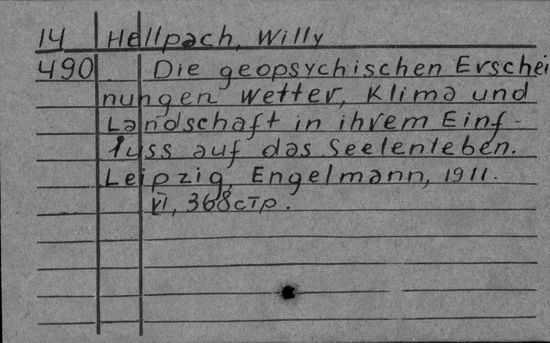 14 Hellpach, Willy
490 Die geopsychischen Erschei
nungen Wetter, Klima und
Landschaft in ihrem Einf-
luss auf das Seelenleben.
Leipzig, Engelmann, 1911.
VI, 368 стр.